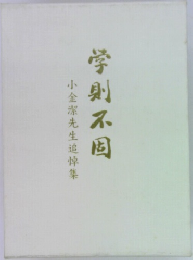 学則不固
小金潔先生追悼集